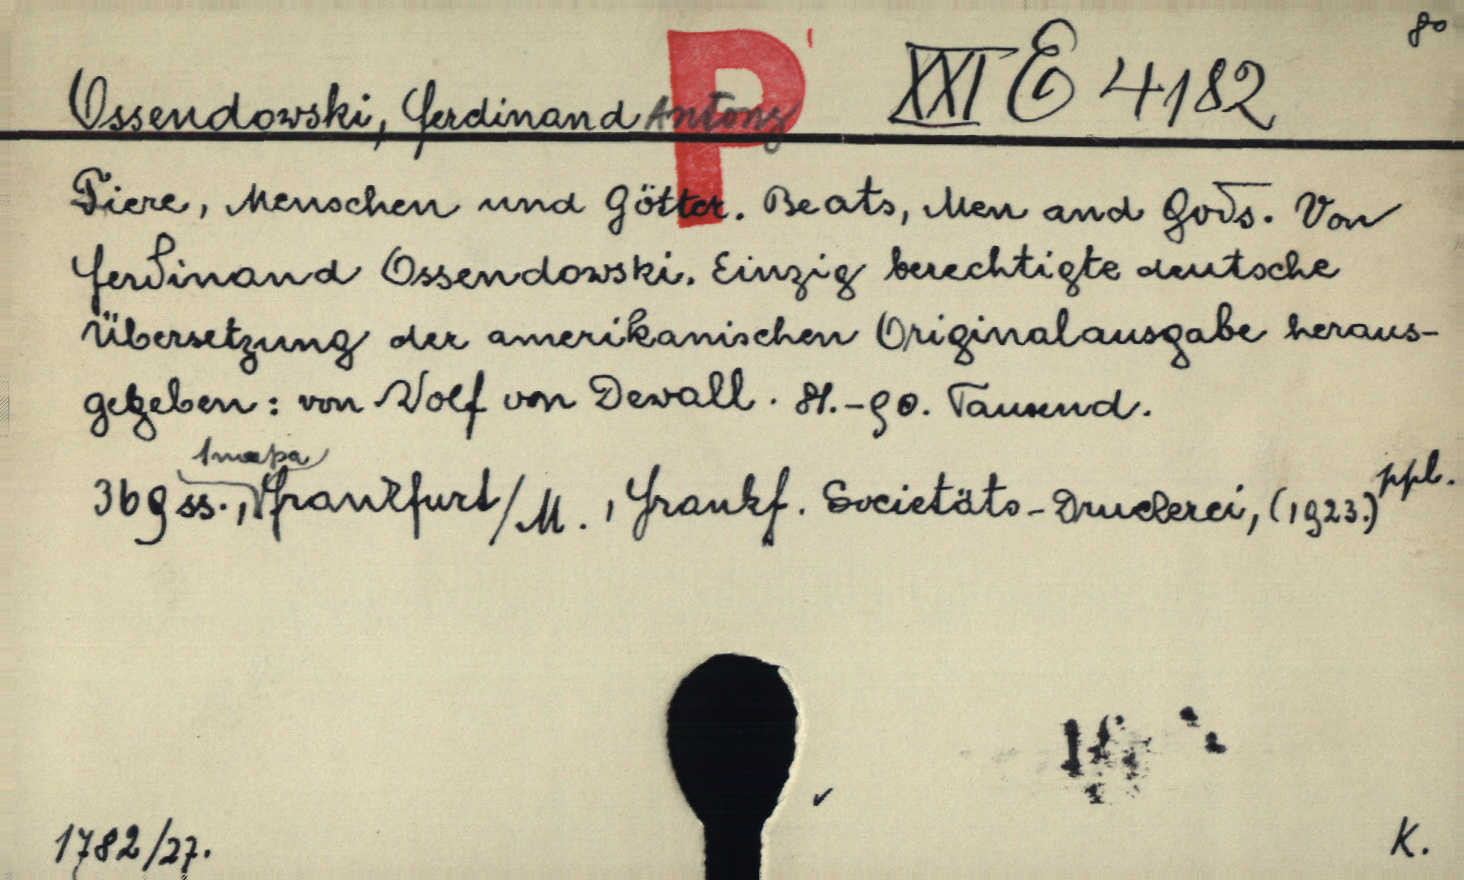 8o
P
XXI E 4182
Ossendowski, Ferdinand Antony
Tiere, Menschen und Götter. Beats, Men and Gods. Von
Ferdinand Ossendowski. Einzig berechtigte deutsche
Übersetzung der amerikanischen Originalausgabe heraus-
gegeben: von Wolf von Dewall. 81.-90. Tausend.
1 mapa
369 ss., Frankfurt/M., Frankf. Societäts-Druckerei, (1923.) ppb.
1782/27.
K.